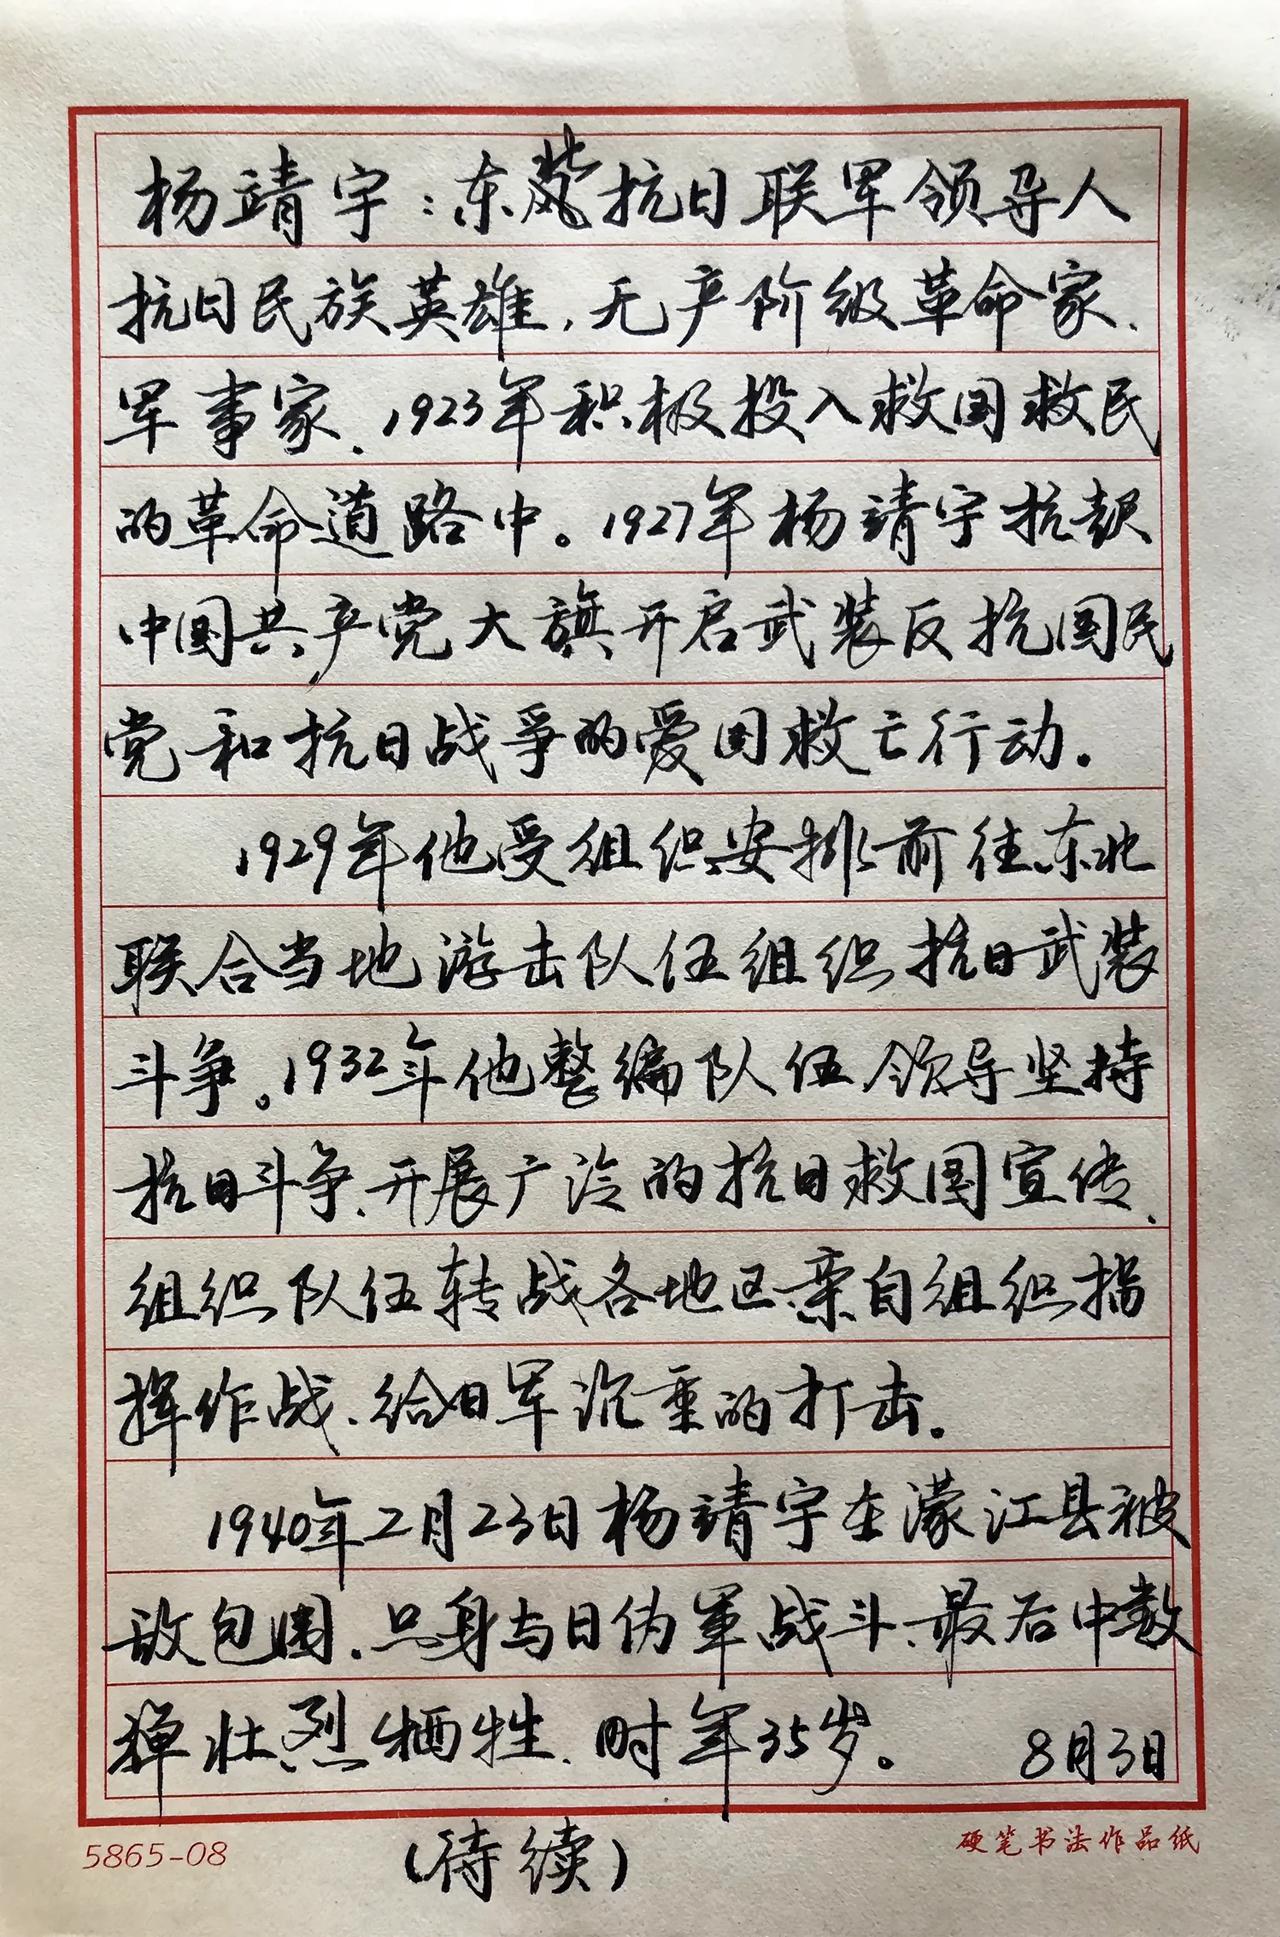 杨靖宇：东北抗日联军领导人
抗日民族英雄，无产阶级革命家、
军事家、1923年积极投入救国救民
的革命道路中。1927年杨靖宇扛起
中国共产党大旗开启武装反抗国民
党和抗日战争的爱国救亡行动。
1929年他受组织安排前往东北
联合当地游击队伍组织抗日武装
斗争。1932年他整编队伍领导坚持
抗日斗争、开展广泛的抗日救国宣传、
组织队伍转战各地区亲自组织指
挥作战、给日军沉重的打击。
1940年2月23日杨靖宇在濛江县被
敌包围、只身与日伪军战斗、最后中数
弹壮烈牺牲、时年35岁。 8月3日
5865-08 硬笔书法作品纸
（待续）